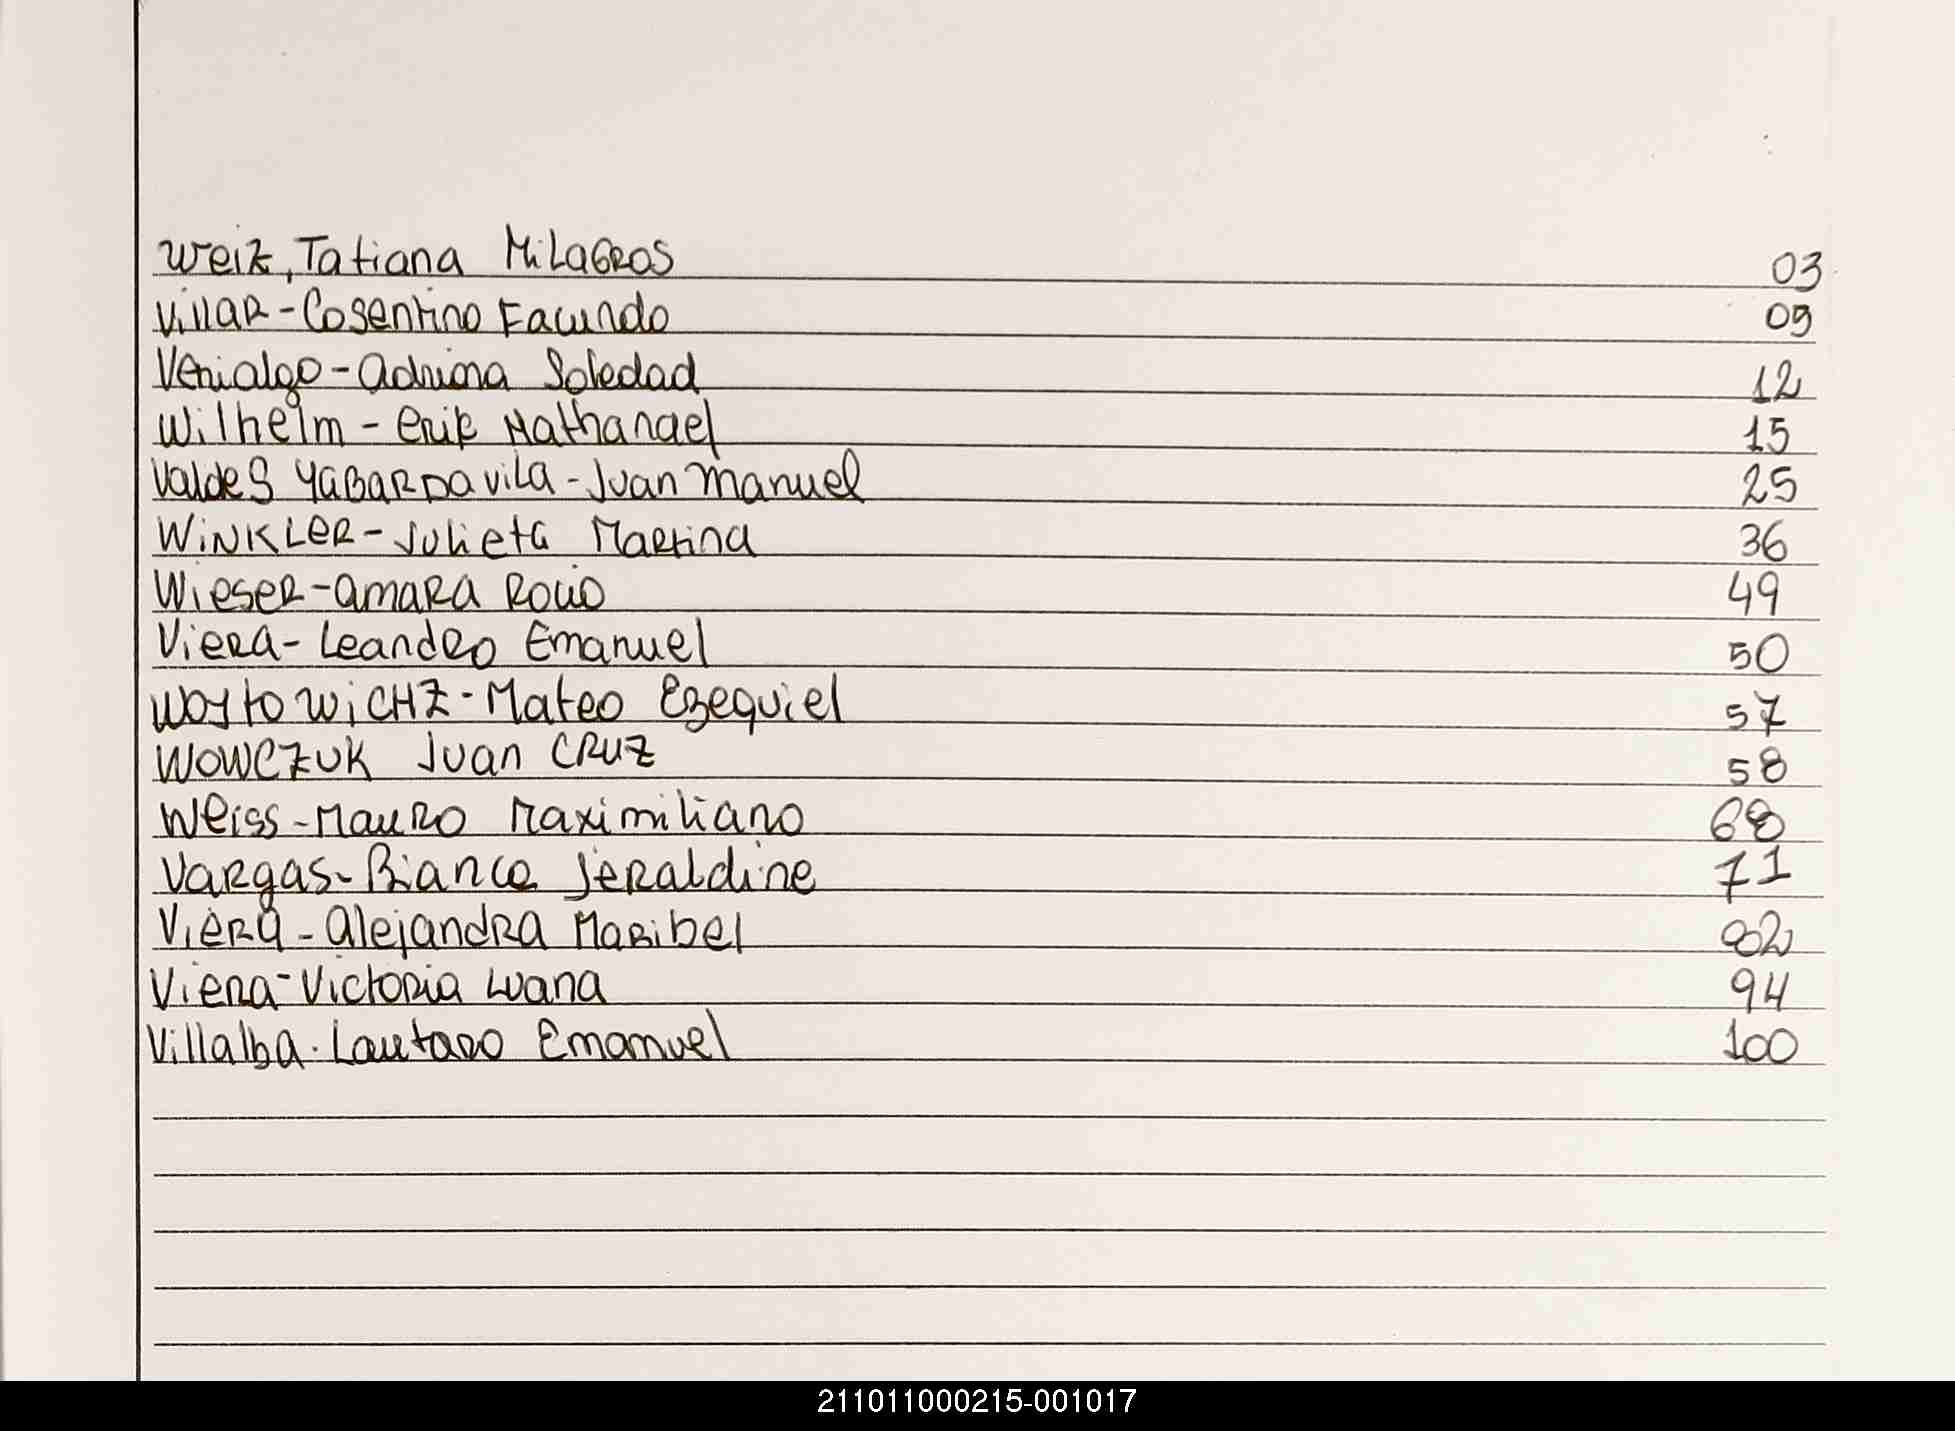 Weiz, Tatiana Milagros 03
Villar - Cosentino Facundo 09
Venialgo - Adriana Soledad 12
Wilhelm - Erik Nathanael 15
Valdes Yabar Davila - Juan Manuel 25
Winkler - Julieta Martina 36
Wieser - Amara Rocio 49
Viera - Leandro Emanuel 50
Woytowichz - Mateo Ezequiel 57
Wowczuk Juan Cruz 58
Weiss - Mauro Maximiliano 68
Vargas - Bianca Jeraldine 71
Viera - Alejandra Maribel 82
Viera - Victoria Luana 94
Villalba - Lautaro Emanuel 100
211011000215-001017